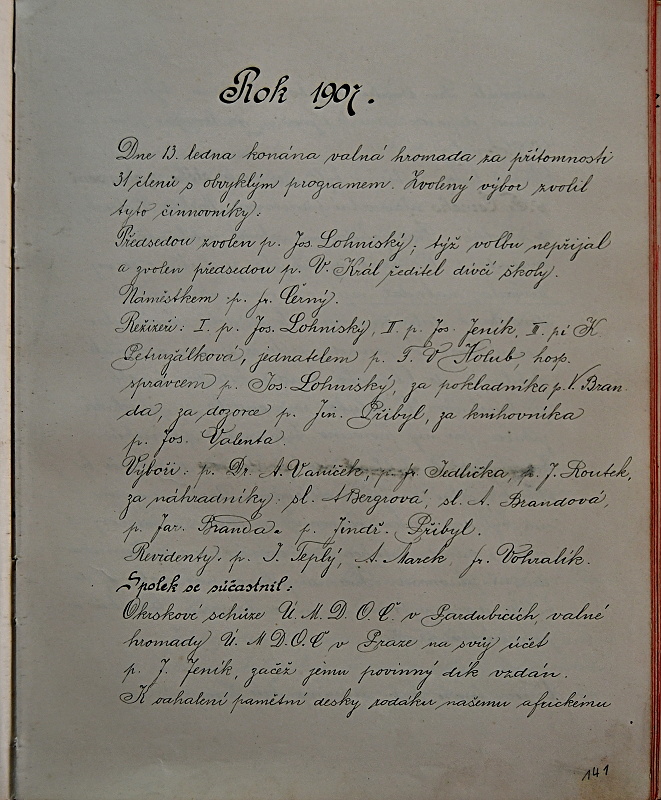 Rok 1907.
Dne 13. ledna konána valná hromada za přítomnosti
31 členů s obvyklým programem. Zvolený výbor zvolil
tyto činnovníky:
Předsedou zvolen p. Jos. Lohniský; týž volbu nepřijal
a zvolen předsedou p. V. Král ředitel dívčí školy.
Náměstkem p. fr. Černý.
Režiséři: I. p. Jos. Lohniský, II. p. Jos. Jeník, II. pí K.
Petružálková, jednatelem p. T. V Holub, hosp.
správcem p. Jos. Lohniský, za pokladníka p. V. Bran-
da, za dozorce p. Jin. Přibyl, za knihovníka
p. Jos. Valenta.
Výboři: p. Dr. A. Vaníček, p. fr. Jedlička, p. J. Routek,
za náhradníky: sl. A Bergrová, sl. A. Brandová,
p. Jar. Branda a p. Jindř. Přibyl.
Revidenty: p. J. Teplý, A. Marek, fr. Vohralík.
Spolek se súčastnil:
Okrskové schůze Ú. M. D. O. Č. v Pardubicích, valné
hromady Ú. M D. O. Č v Praze na svůj účet
p. J. Jeník, začež jemu povinný dík vzdán.
K odhalení pamětní desky rodáku našemu africkému
141